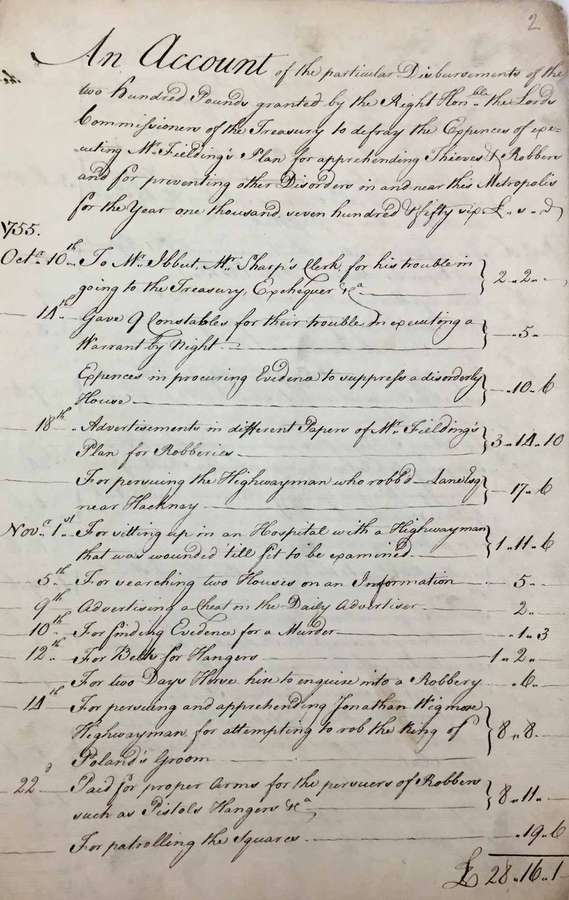 2
An Account of the particular Disbursements of the
two hundred Pounds granted by the Right Honble. the Lords
Commissioners of the Treasury to defray the Expences of exe-
cuting Mr. Fielding's Plan for apprehending Thieves & Robbers
and for preventing other Disorders in and near this Metropolis
for the Year one thousand seven hundred & fifty six £ „ s „ d
1755.
Octr. 10th. To Mr. Ibbut, Mr. Sharp's Clerk, for his trouble in
going to the Treasury, Exchequer &ca. 2 „ 2 „ —
14th. Gave 9 Constables for their trouble in executing a
Warrant by Night — „ 5 „
Expences in procuring Evidence to suppress a disorderly
House — „ 10 „ 6
18th. Advertisements in different Papers of Mr. Fielding's
Plan for Robberies 3 „ 14 „ 10
For persuing the Highwayman who robb'd — Lane Esq
near Hackney — „ 17 „ 6
Novr. 1st. For sitting up in an Hospital with a Highwayman
that was wounded till fit to be examined 1 „ 11 „ 6
5th. For searching two Houses on an Information — „ 5 „
9th. Advertising a Cheat in the Daily Advertiser — „ 2 „
10th. For finding Evidence for a Murder — „ 1 „ 3
12th. For Belts for Hangers 1 „ 2 „ —
For two Days Horse hire to enquire into a Robbery — „ 6 „
14th. For persuing and apprehending Jonathan Wigmore
Highwayman, for attempting to rob the King of
Poland's Groom 8 „ 8 „
22d. Paid for proper Arms for the persuers of Robbers
such as Pistols Hangers &ca. 8 „ 11 „ —
For patrolling the Squares — „ 19 „ 6
£ 28 „ 16 „ 1